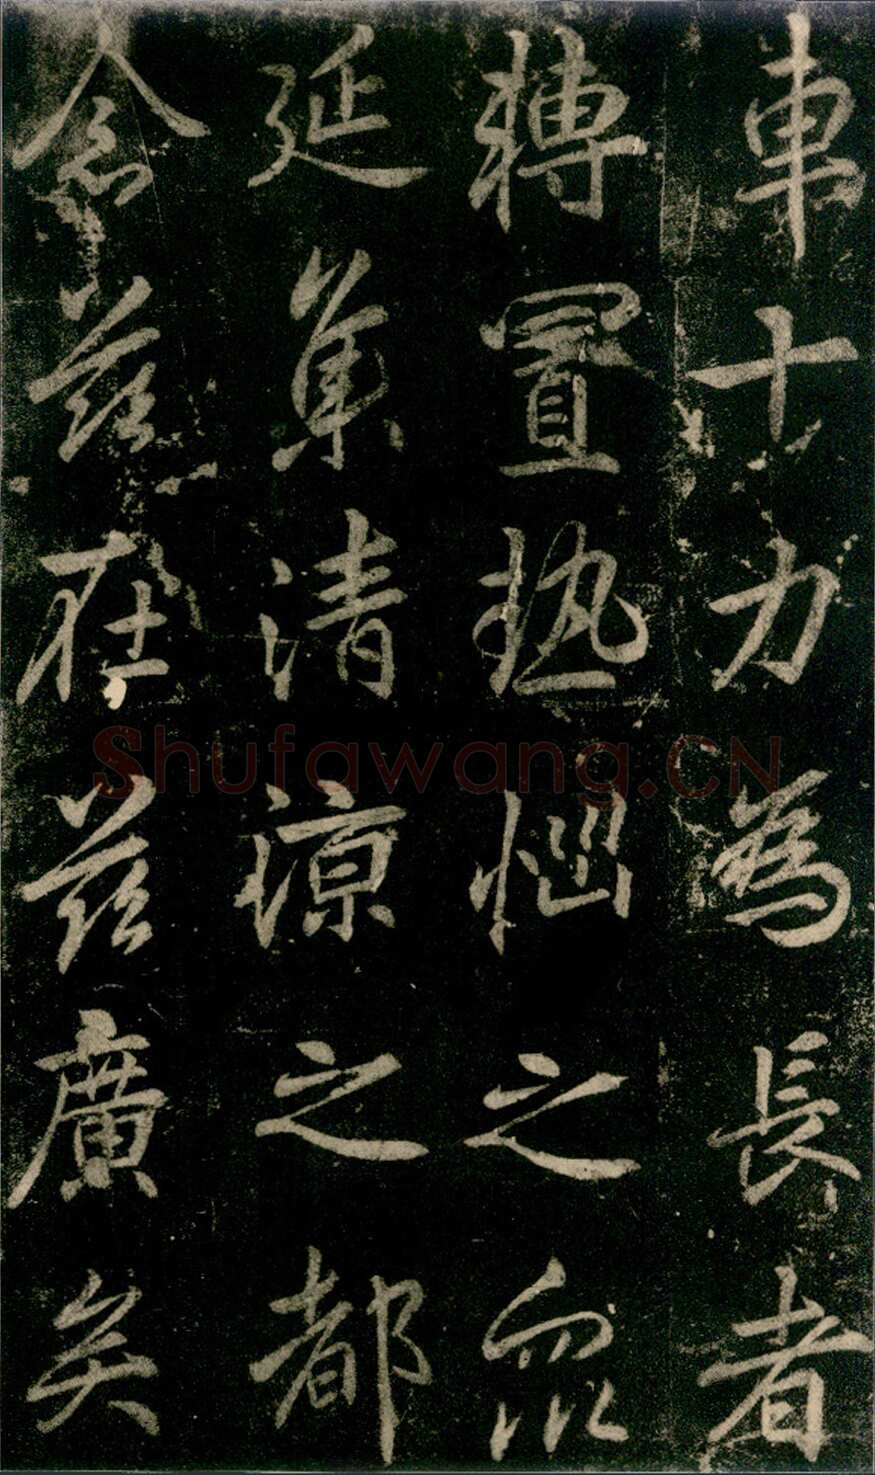 車十力為長者
轉置熱惱之眾
延集清涼之都
念茲在茲廣矣
Shufawang.CN